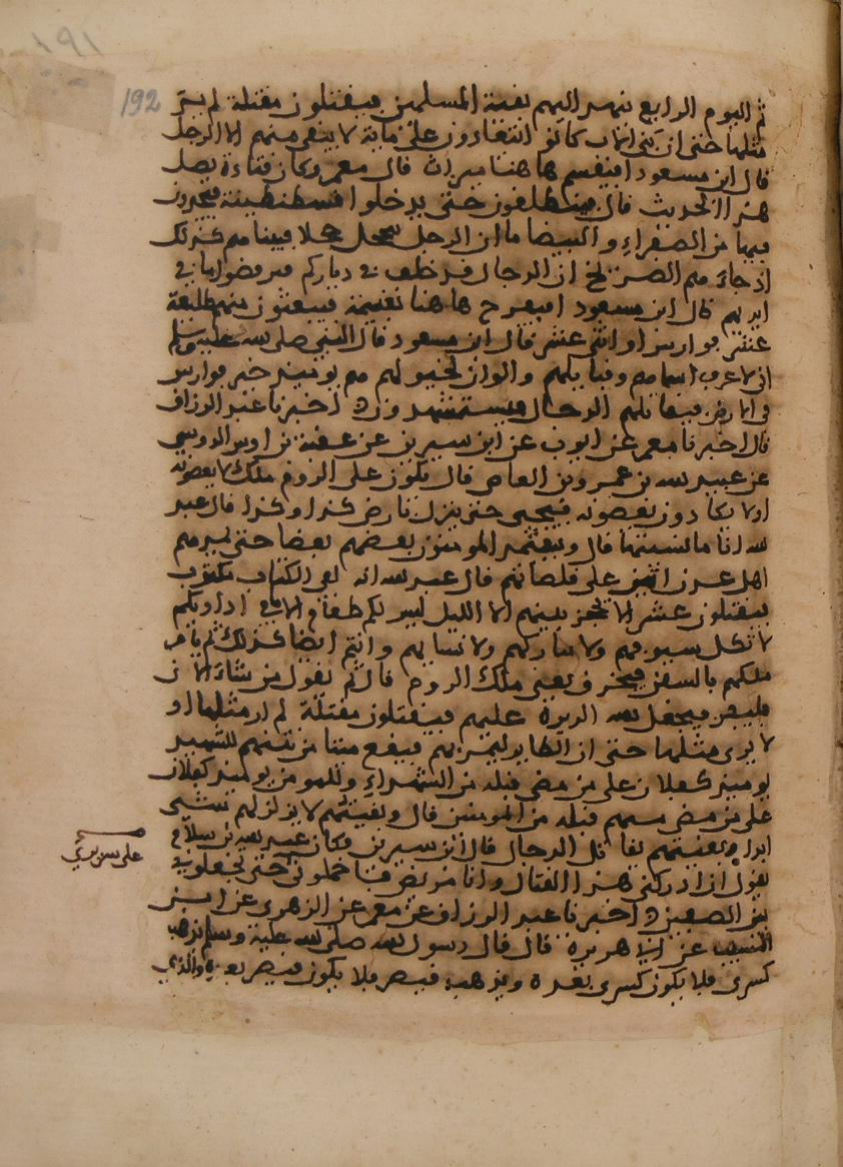 192
ثم اليوم الرابع ينهد اليهم بقية المسلمين فيقتتلون مقتلة لم ير
مثلها حتى ان بني الاب كانوا يتعادون على مائة لا يبقى منهم الا الرجل
قال ابن مسعود افيقسم هاهنا ميراث قال معمر وكان قتادة يصل
هذا الحديث قال فينطلقون حتى يدخلوا قسطنطينة فيجدون
فيها من الصفراء والبيضا ما ان الرجل يتحجل حجلا فبينا هم كذلك
اذ جاءهم الصريخ ان الدجال قد خلف في دياركم فيرفضون ما في
ايديهم قال ابن مسعود افيفرح هاهنا بغنيمة فيبعثون منهم طليعة
عشر فوارس او اثني عشر قال ابن مسعود قال النبي صلى الله عليه وسلم
اني لاعرف اسماهم وقبايلهم والوان خيولهم هم يومئذ خير فوارس
في الارض فيقاتلهم الدجال فيستشهدون اخبرنا عبد الرزاق
قال اخبرنا معمر عن ايوب عن ابن سيرين عن عقبة بن اوس الدوسي
عن عبد الله بن عمرو بن العاص قال يكون على الروم ملك لا يعصونه
او لا يكادون يعصونه فيجي حتى ينزل بارض كذا وكذا قال عبد
الله انا ما نسيتها قال ويستمد المومنون بعضهم بعضا حتى يمدهم
اهل عدن ابين على قلصاتهم قال عبد الله انه لفي الكتاب مكتوب
فيقتتلون عشرا لا يحجز بينهم الا الليل ليس لكم طعام الا ما في اداويكم
لا تكل سيوفهم ولا نيازكهم ولا نشابهم وانتم ايضا كذلك ثم يامر
ملكهم بالسفن فتحرق يعني ملك الروم قال ثم يقول من شاء الان
فليفر فيجعل الله الدبرة عليهم فيقتتلون مقتلة لم ير مثلها او
لا يرى مثلها حتى ان الطاير ليمر بهم فيقع ميتا من نتنهم للشهيد
يومئذ كفلان على من مضى قبله من الشهداء وللمومن يومئذ كفلان
على من مضى منهم قبله من المومنين قال وبقيتهم لا يزلزلهم شي
ابدا وبقيتهم يقاتل الدجال قال ابن سيرين وكان عبد الله بن سلام
يقول ان ادركني هذا القتال وانا مريض فاحملوني حتى تجعلوني
بين الصفين اخبرنا عبد الرزاق عن معمر عن الزهري عن ابن
المسيب عن ابي هريرة قال قال رسول الله صلى الله عليه وسلم يذهب
كسرى فلا يكون كسرى بعده ويذهب قيصر فلا يكون قيصر بعده والذي
على سريري